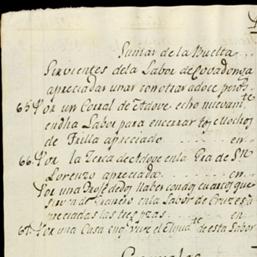 Sumas de la Buelta
Sirvientes de la Labor de Covadonga
apreciadas unas con otras a doce pesos
65 Por un Corral de Adove echo nuevamte
en dha Labor para encerrar los
de Trilla apreciado en
66 Por la Zerca de Adove en la de Sn
Lorenzo apreciada en
Por una de dos con dos cuartos que
sirven de Granero en la Labor de Cruzes a
preciadas las tres pzas en
67 Por una Casa enq vive el de esta Labor